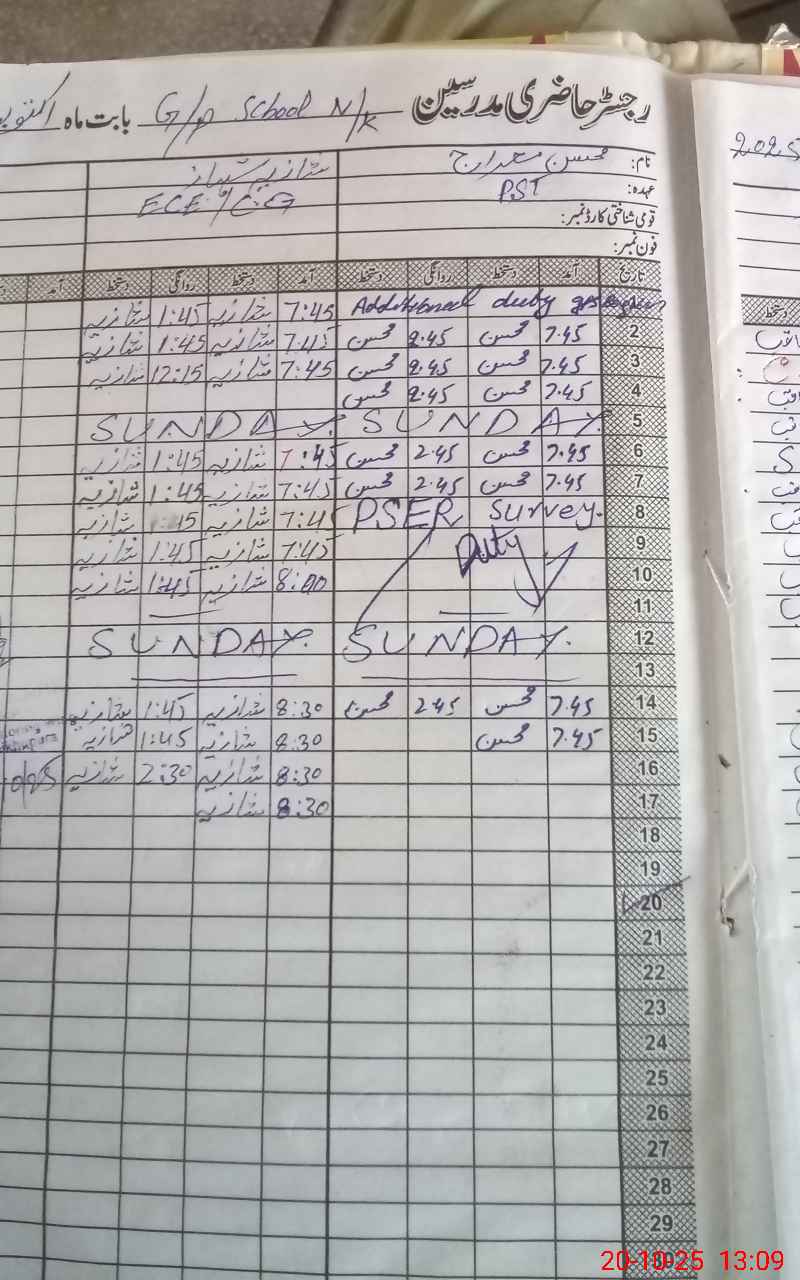 رجسٹر حاضری مدرسین G/P School N/K بابت ماہ اکتوبر
2025
نام: محسن معراج شازیہ شہباز
عہدہ: PST ECE / C.G
قومی شناختی کارڈ نمبر:
فون نمبر:
تاریخ آمد دستخط روانگی دستخط آمد دستخط روانگی دستخط آمد
Additional duty 7:45 شازیہ 1:45 شازیہ
2 7.45 محسن 2.45 محسن 7:45 شازیہ 1:45 شازیہ
3 7.45 محسن 2.45 محسن 7:45 شازیہ 12:15 شازیہ
4 7.45 محسن 2.45 محسن
5 SUNDAY. SUNDAY.
6 7.45 محسن 2.45 محسن 7:45 شازیہ 1:45 شازیہ
7 7.45 محسن 2.45 محسن 7:45 شازیہ 1:45 شازیہ
8 PSER Survey. 7:45 شازیہ 1:45 شازیہ
9 Duty 7:45 شازیہ 1:45 شازیہ
10 8:00 شازیہ 1:45 شازیہ
11
12 SUNDAY. SUNDAY.
13
14 7.45 محسن 2.45 محسن 8:30 شازیہ 1:45 شازیہ
15 7.45 محسن 8:30 شازیہ 1:45 شازیہ
16 8:30 شازیہ 2:30 شازیہ
17 8:30 شازیہ
18
19
20
21
22
23
24
25
26
27
28
29
20-10-25 13:09